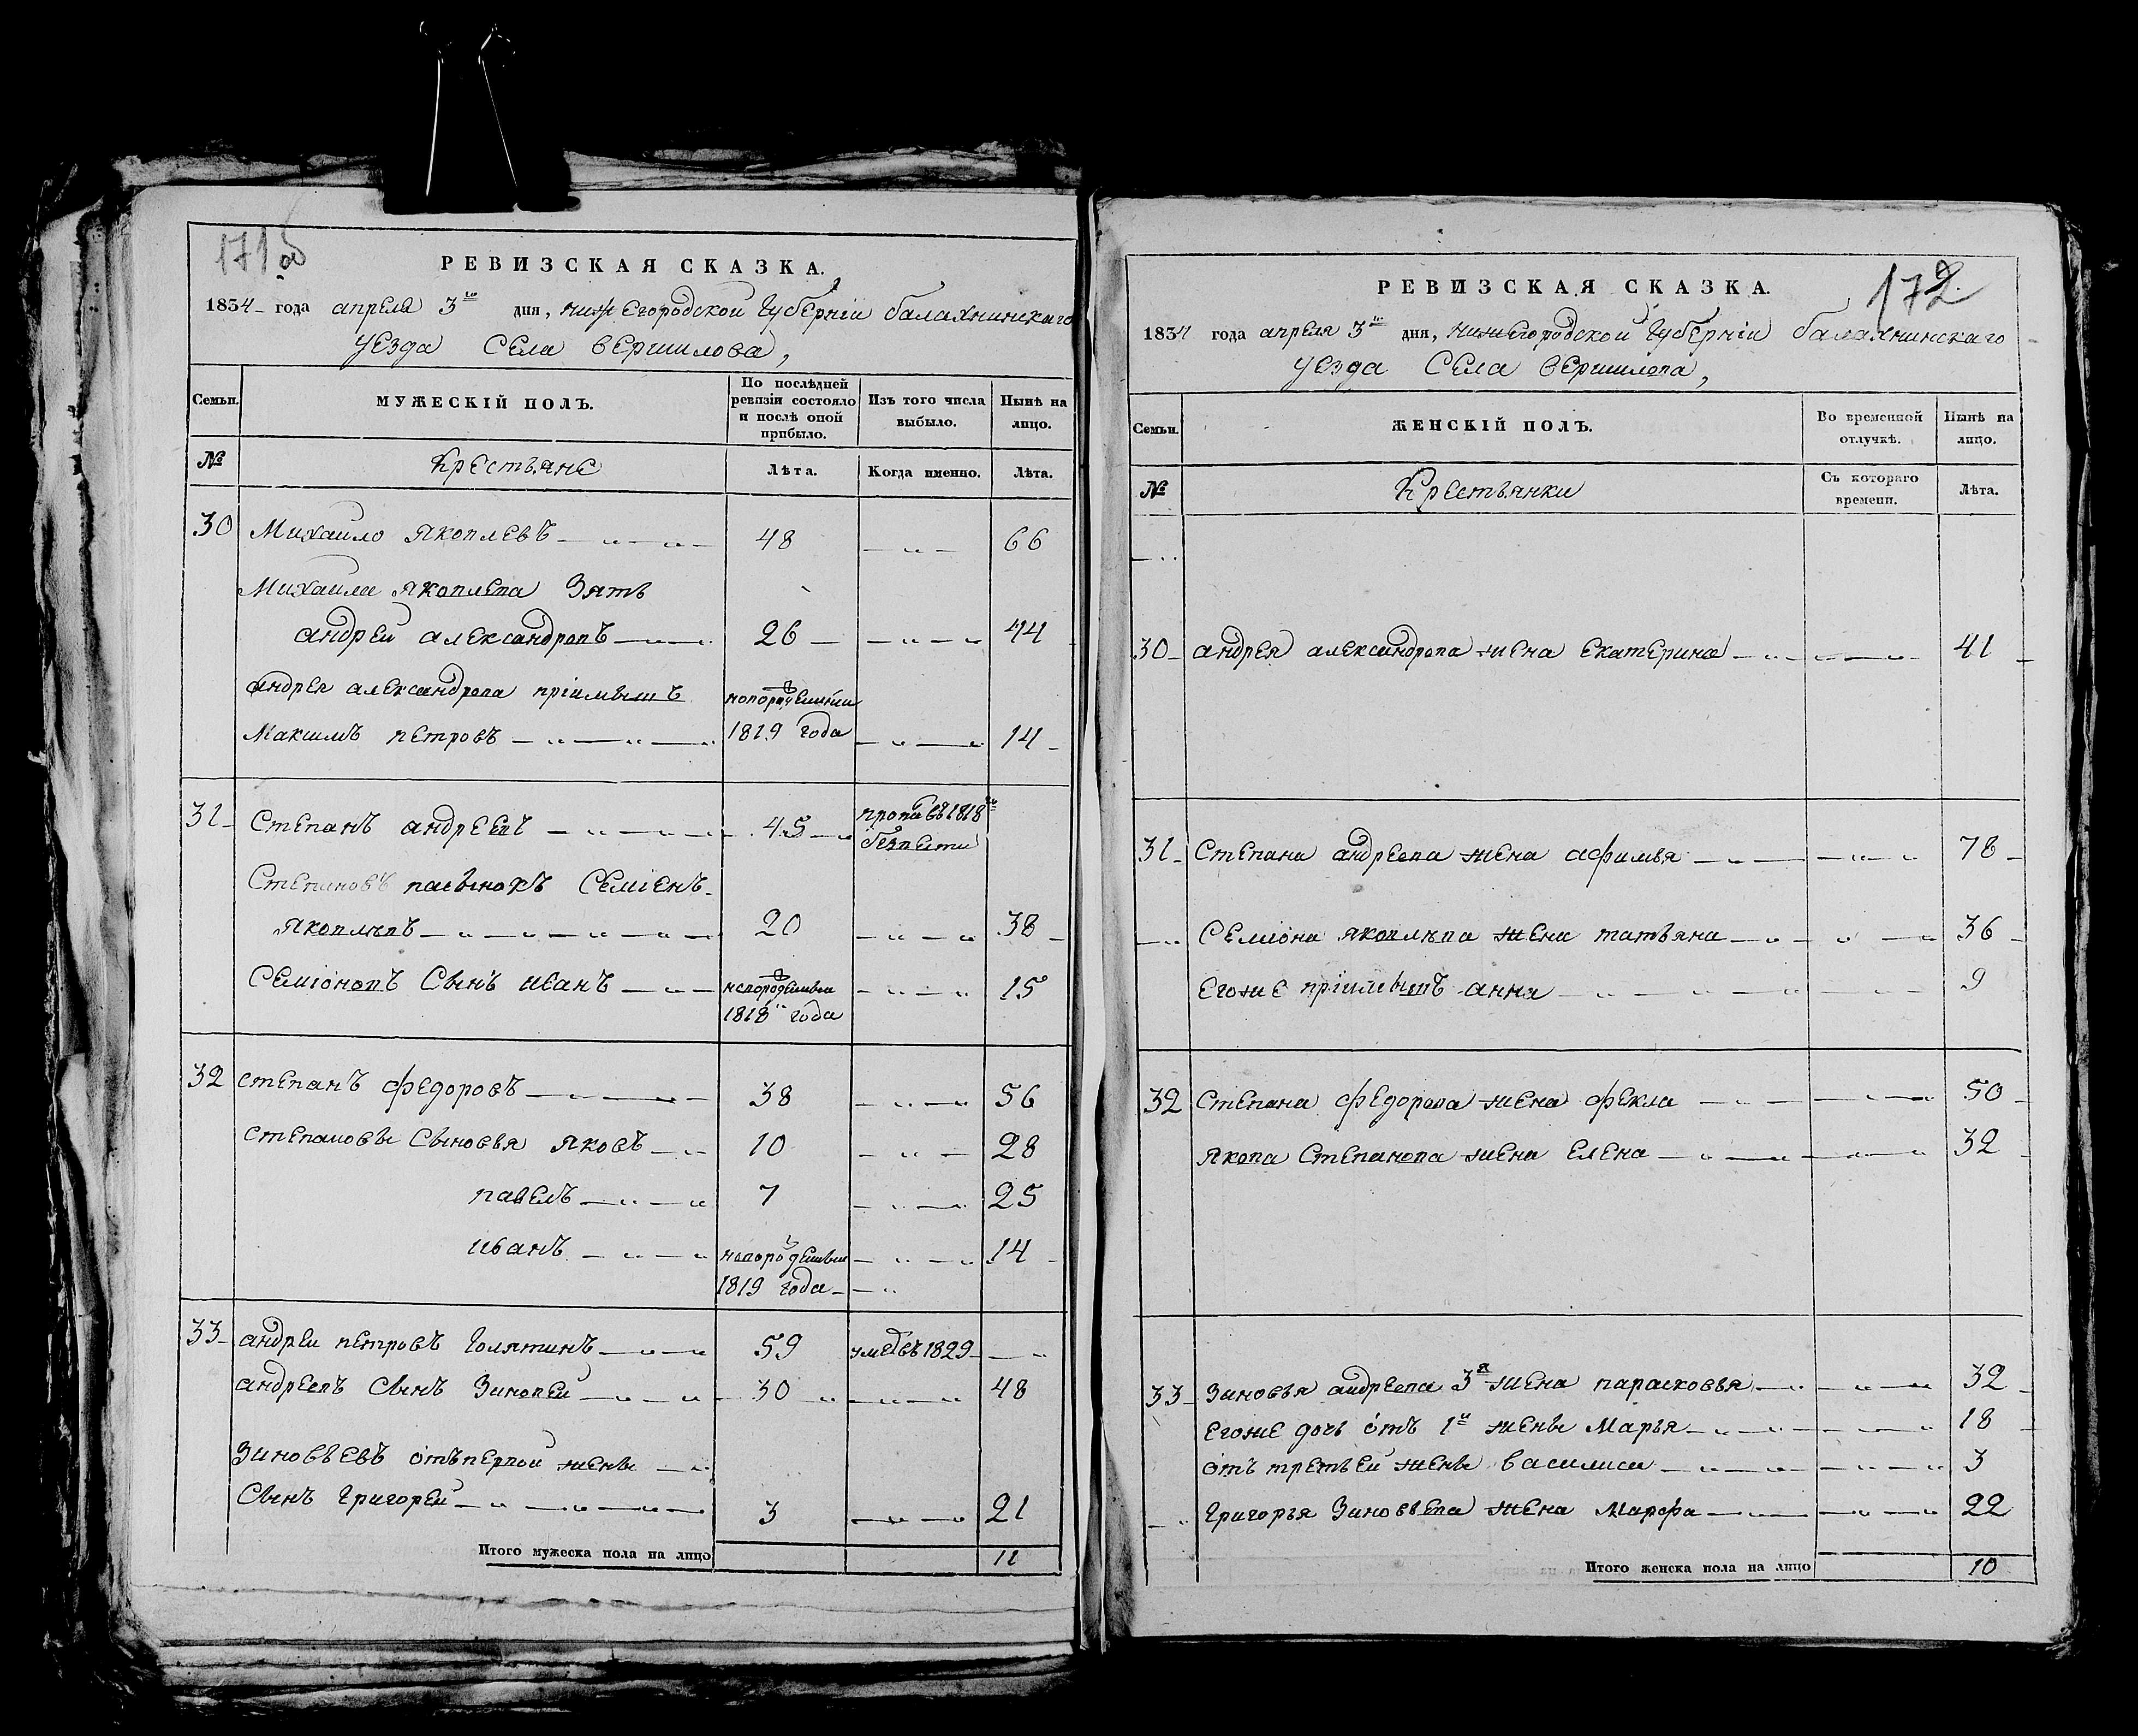 171 об
РЕВИЗСКАЯ СКАЗКА.
1834 года апреля 3го дня, нижегородской губернiи балахнинскаго
уезда села вершилова,
Семьи.
МУЖЕСКIЙ ПОЛЪ.
По послѣдней
ревизiи состояло
и послѣ оной
прибыло.
Изъ того числа
выбыло.
Нынѣ на
лицо.
№
Крестьяне
Лѣта.
Когда именно.
Лѣта.
30 Михайло яковлевъ 48 66
Михайла яковлева Зять
андрей александровъ 26 44
андрея александрова прiимышъ новорожденный
Максимъ петровъ 1819 года 14
31 Степанъ андреевъ 45 пропавъ 1818го
безвести
Степановъ пасынокъ Семiенъ
яковлевъ 20 38
Семiоновъ Сынъ иванъ новорожденный 15
1818 года
32 степанъ федоровъ 38 56
степановы Сыновья яковъ 10 28
павелъ 7 25
иванъ новорожденный 14
1819 года
33 андрей петровъ Голятинъ 59 умеръ въ 1829
андреевъ Сынъ Зиновей 30 48
Зиновьевъ отъ первой жены
Сынъ Григорей 3 21
Итого мужеска пола на лицо 11
172
РЕВИЗСКАЯ СКАЗКА.
1834 года апреля 3го дня, нижегородской губернiи балахнинскаго
уезда Села вершилова,
Семьи.
ЖЕНСКIЙ ПОЛЪ.
Во временной
отлучкѣ.
Нынѣ на
лицо.
№
Крестьянки
Съ котораго
времени.
Лѣта.
30 андрея александрова жена екатерина 41
31 Степана андреева жена афимья 78
Семiона яковлева жена татьяна 36
егоже прiимышъ анна 9
32 Степана федорова жена фекла 50
якова Степанова жена елена 32
33 Зиновья андреева 3я жена парасковья 32
егоже дочь отъ 1й жены Марья 18
отъ третьей жены василиса 3
Григорья Зиновьева жена Марфа 22
Итого женска пола на лицо 10